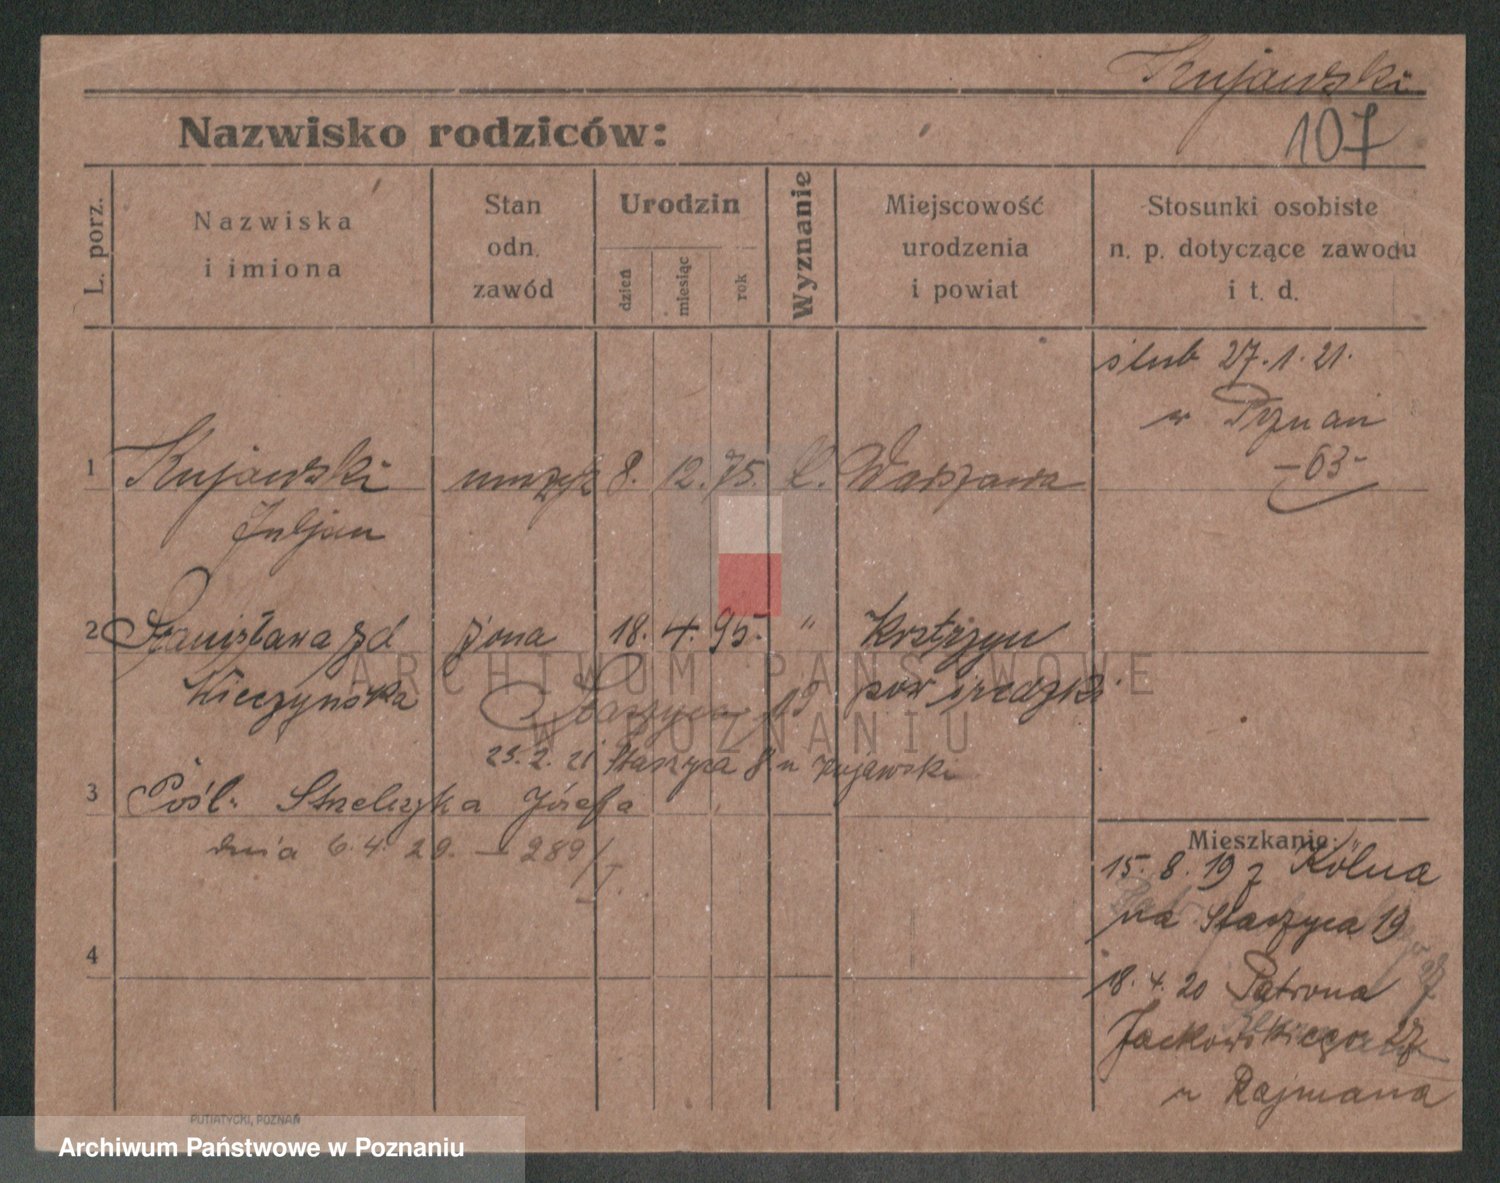 Kujawski
107
Nazwisko rodziców:
L. porz.
Nazwiska
i imiona
Stan
odn.
zawód
Urodzin
dzień
miesiąc
rok
Wyznanie
Miejscowość
urodzenia
i powiat
Stosunki osobiste
n. p. dotyczące zawodu
i t. d.
ślub 27.1.21.
w Poznań
-63-
1 Kujawski muzyk 8. 12. 75. k. Warszawa
Juljan
2 Stanisława zd żona 18. 4. 95. " Krstzyn
Kieczyńska pow średzki
Staszyca 19
23.2.21 Staszyca 8 u Kujawski
3 Pośl. Strelczyka Józefa
dnia 6.4.20. - 289/I.
4
Mieszkanie:
15.8.19 z Kölna
na Staszyca 19
18.4.20 Patrona
Jackowskiego 27
u Rajmana
PUTIATYCKI, POZNAŃ
ARCHIWUM PAŃSTWOWE
W POZNANIU
Archiwum Państwowe w Poznaniu